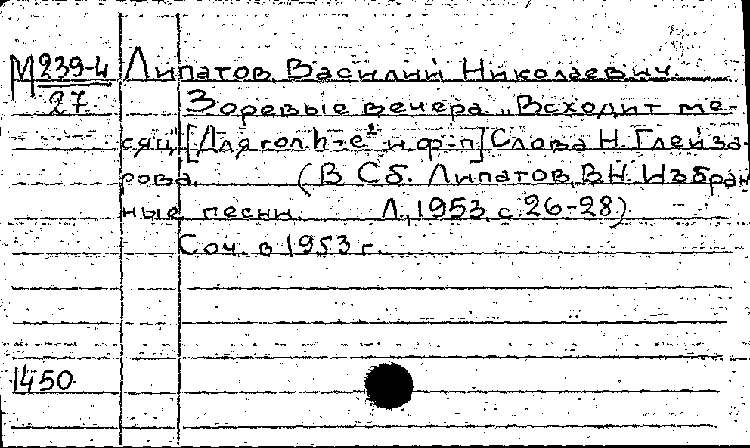 М 239-4 Липатов, Василий Николаевич.
27 Зоревые вечера. „Всходит ме-
сяц" [Для гол. h-e² и ф-п] Слова Н. Глейза-
рова. (В Сб. Липатов, В.Н. Избран
ные песни. Л., 1953, с. 26-28)
Соч. в 1953 г.
1450